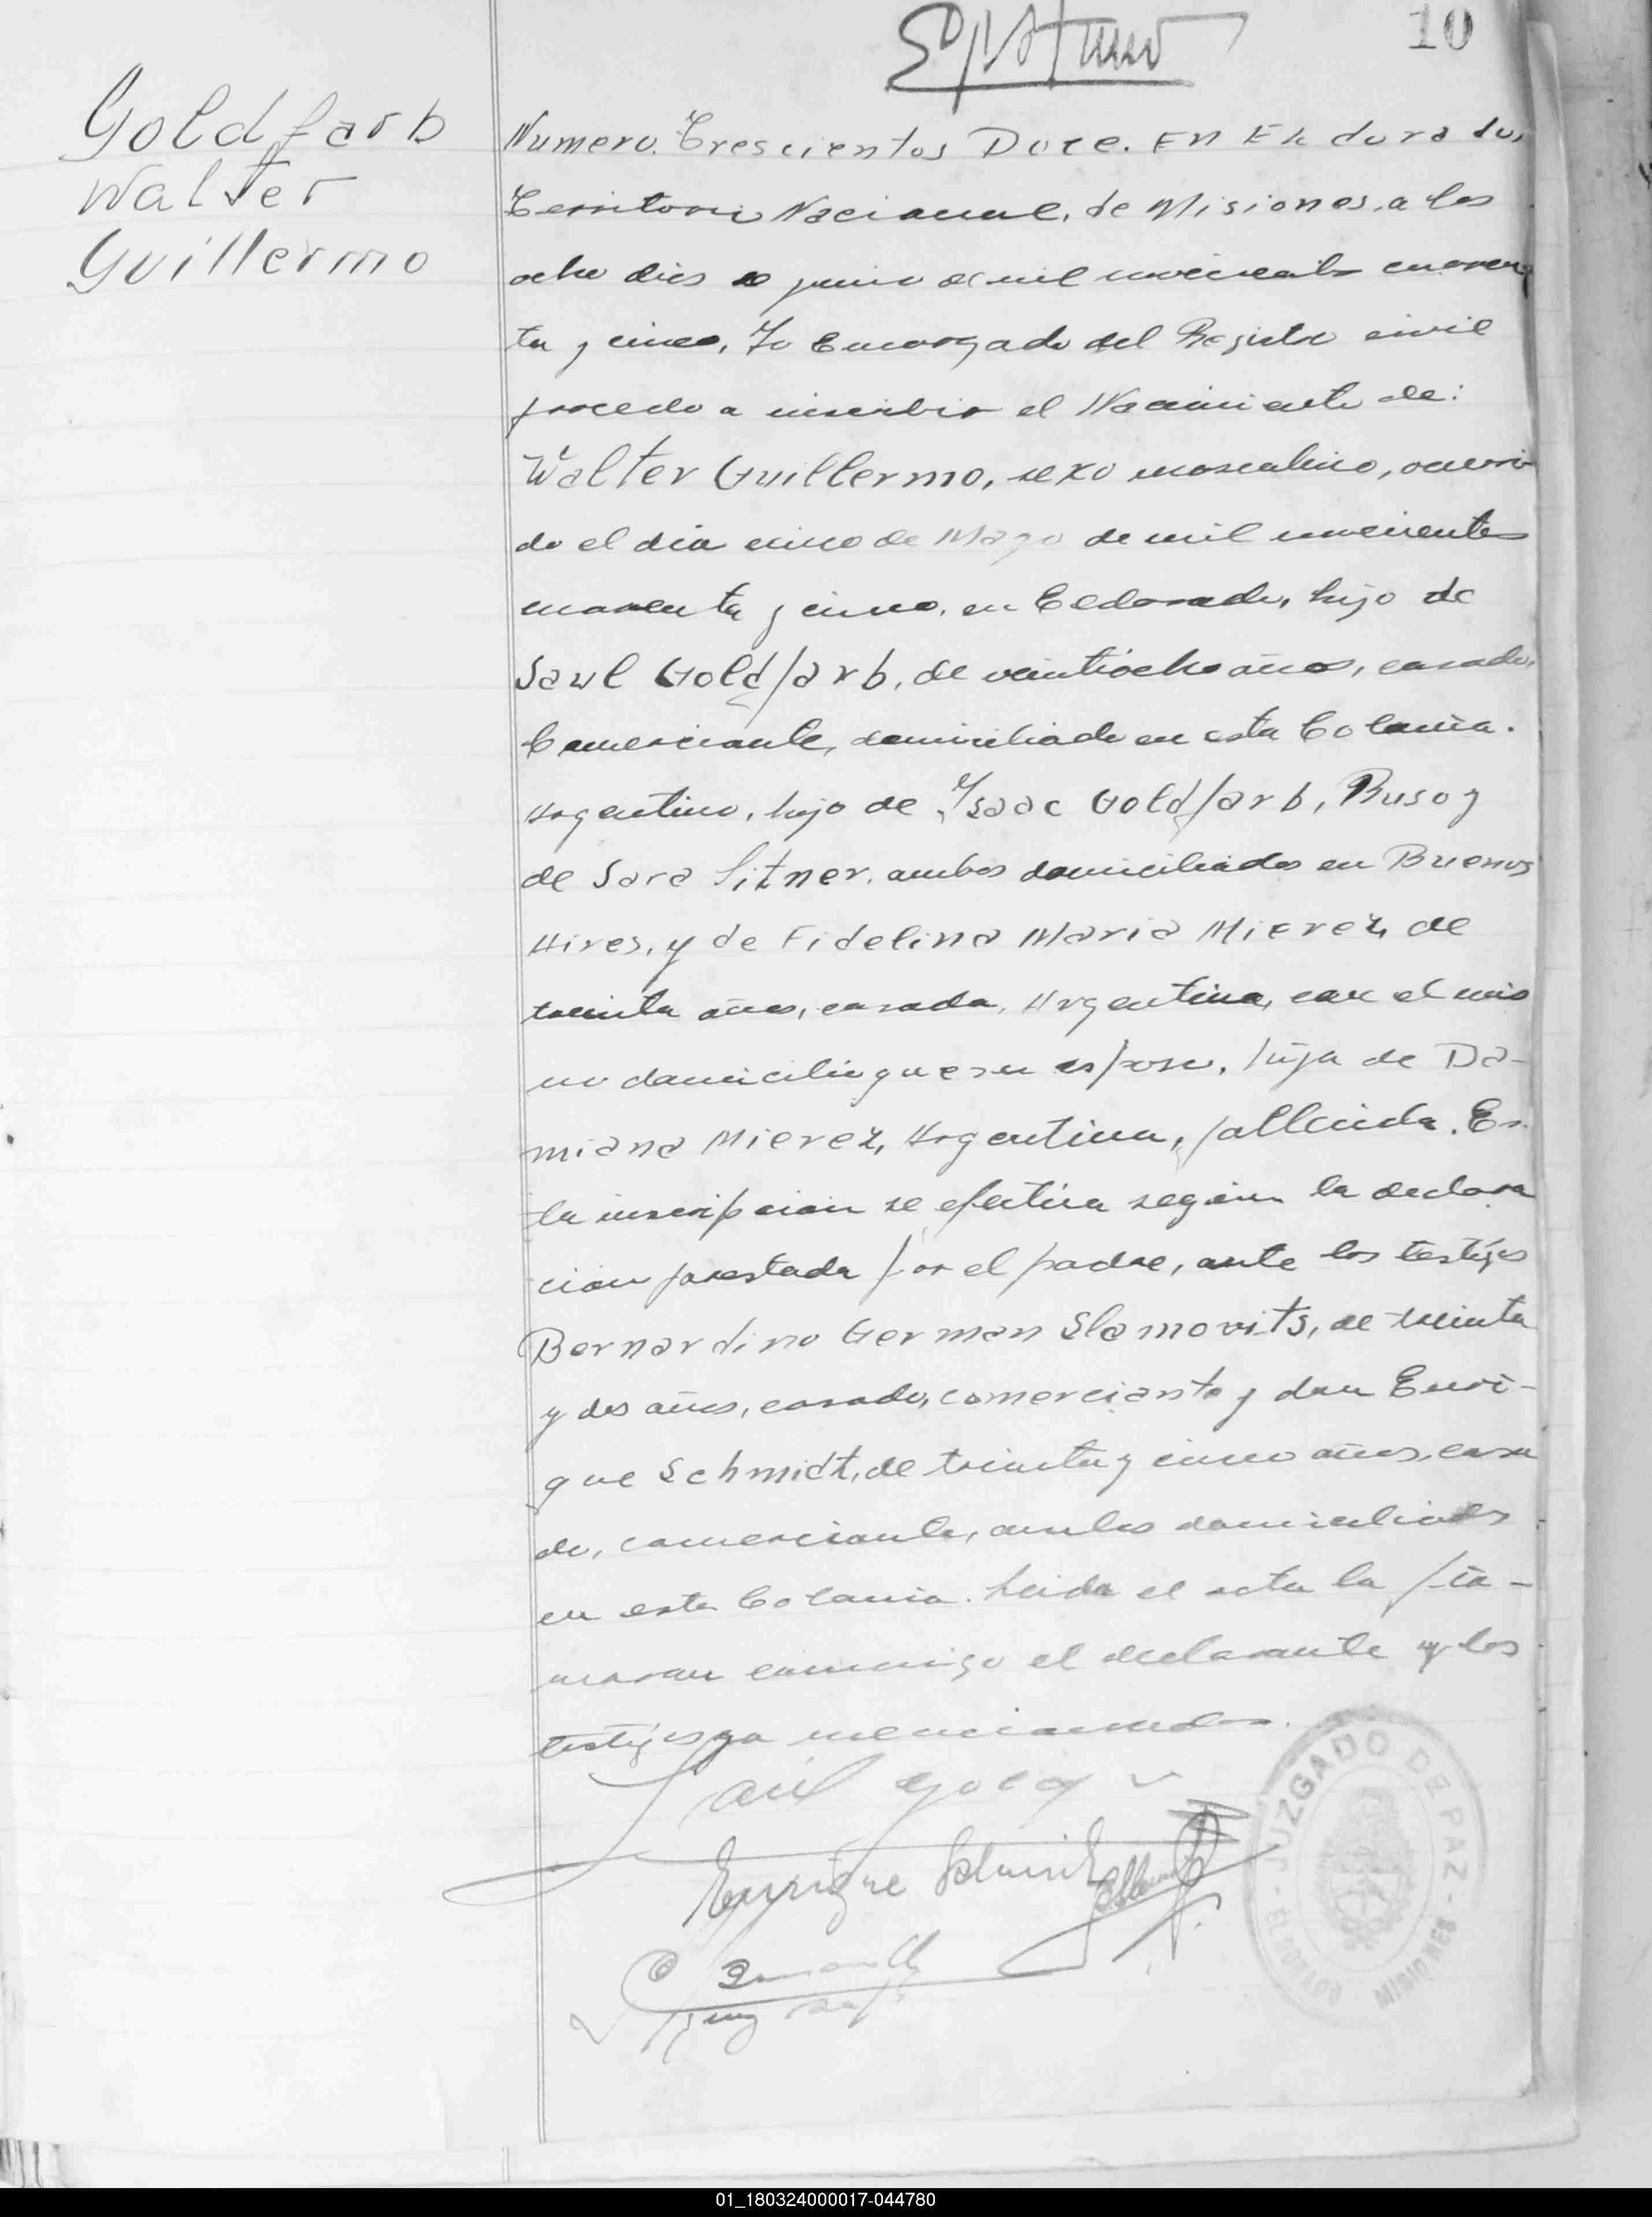 10
Goldfarb
Walter
Guillermo
Numero. Trescientos Doce. En Eldorado,
Territorio Nacional, de Misiones, a los
ocho dias de junio de mil novecientos cuaren
ta y cinco, Yo Encargado del Registro civil
procedo a inscribir el Nacimiento de:
Walter Guillermo, sexo masculino, ocurri
do el dia cinco de Mayo de mil novecientos
cuarenta y cinco, en Eldorado, hijo de
Saul Goldfarb, de veintiocho años, casado,
Comerciante, domiciliado en esta Colonia.
Argentino, hijo de Ysaac Goldfarb, Ruso y
de Sara Sitner, ambos domiciliados en Buenos
Aires, y de Fidelina Maria Mierez, de
treinta años, casada, Argentina, con el mis
mo domicilio que su esposo, hija de Da-
miana Mierez, Argentina, fallecida. Es
la inscripcion se efectua según la declara
cion prestada por el padre, ante los testigos
Bernardino German Slamovits, de treinta
y dos años, casado, comerciante y don Enri-
que Schmidt, de treinta y cinco años, casa
do, comerciante, ambos domiciliados
en esta Colonia. Leida el acta la fir-
maron conmigo el declarante y los
testigos ya mencionados.
Saúl Gold
Enrique Schmidt
JUZGADO DE PAZ
ELDORADO - MISIONES
01_180324000017-044780